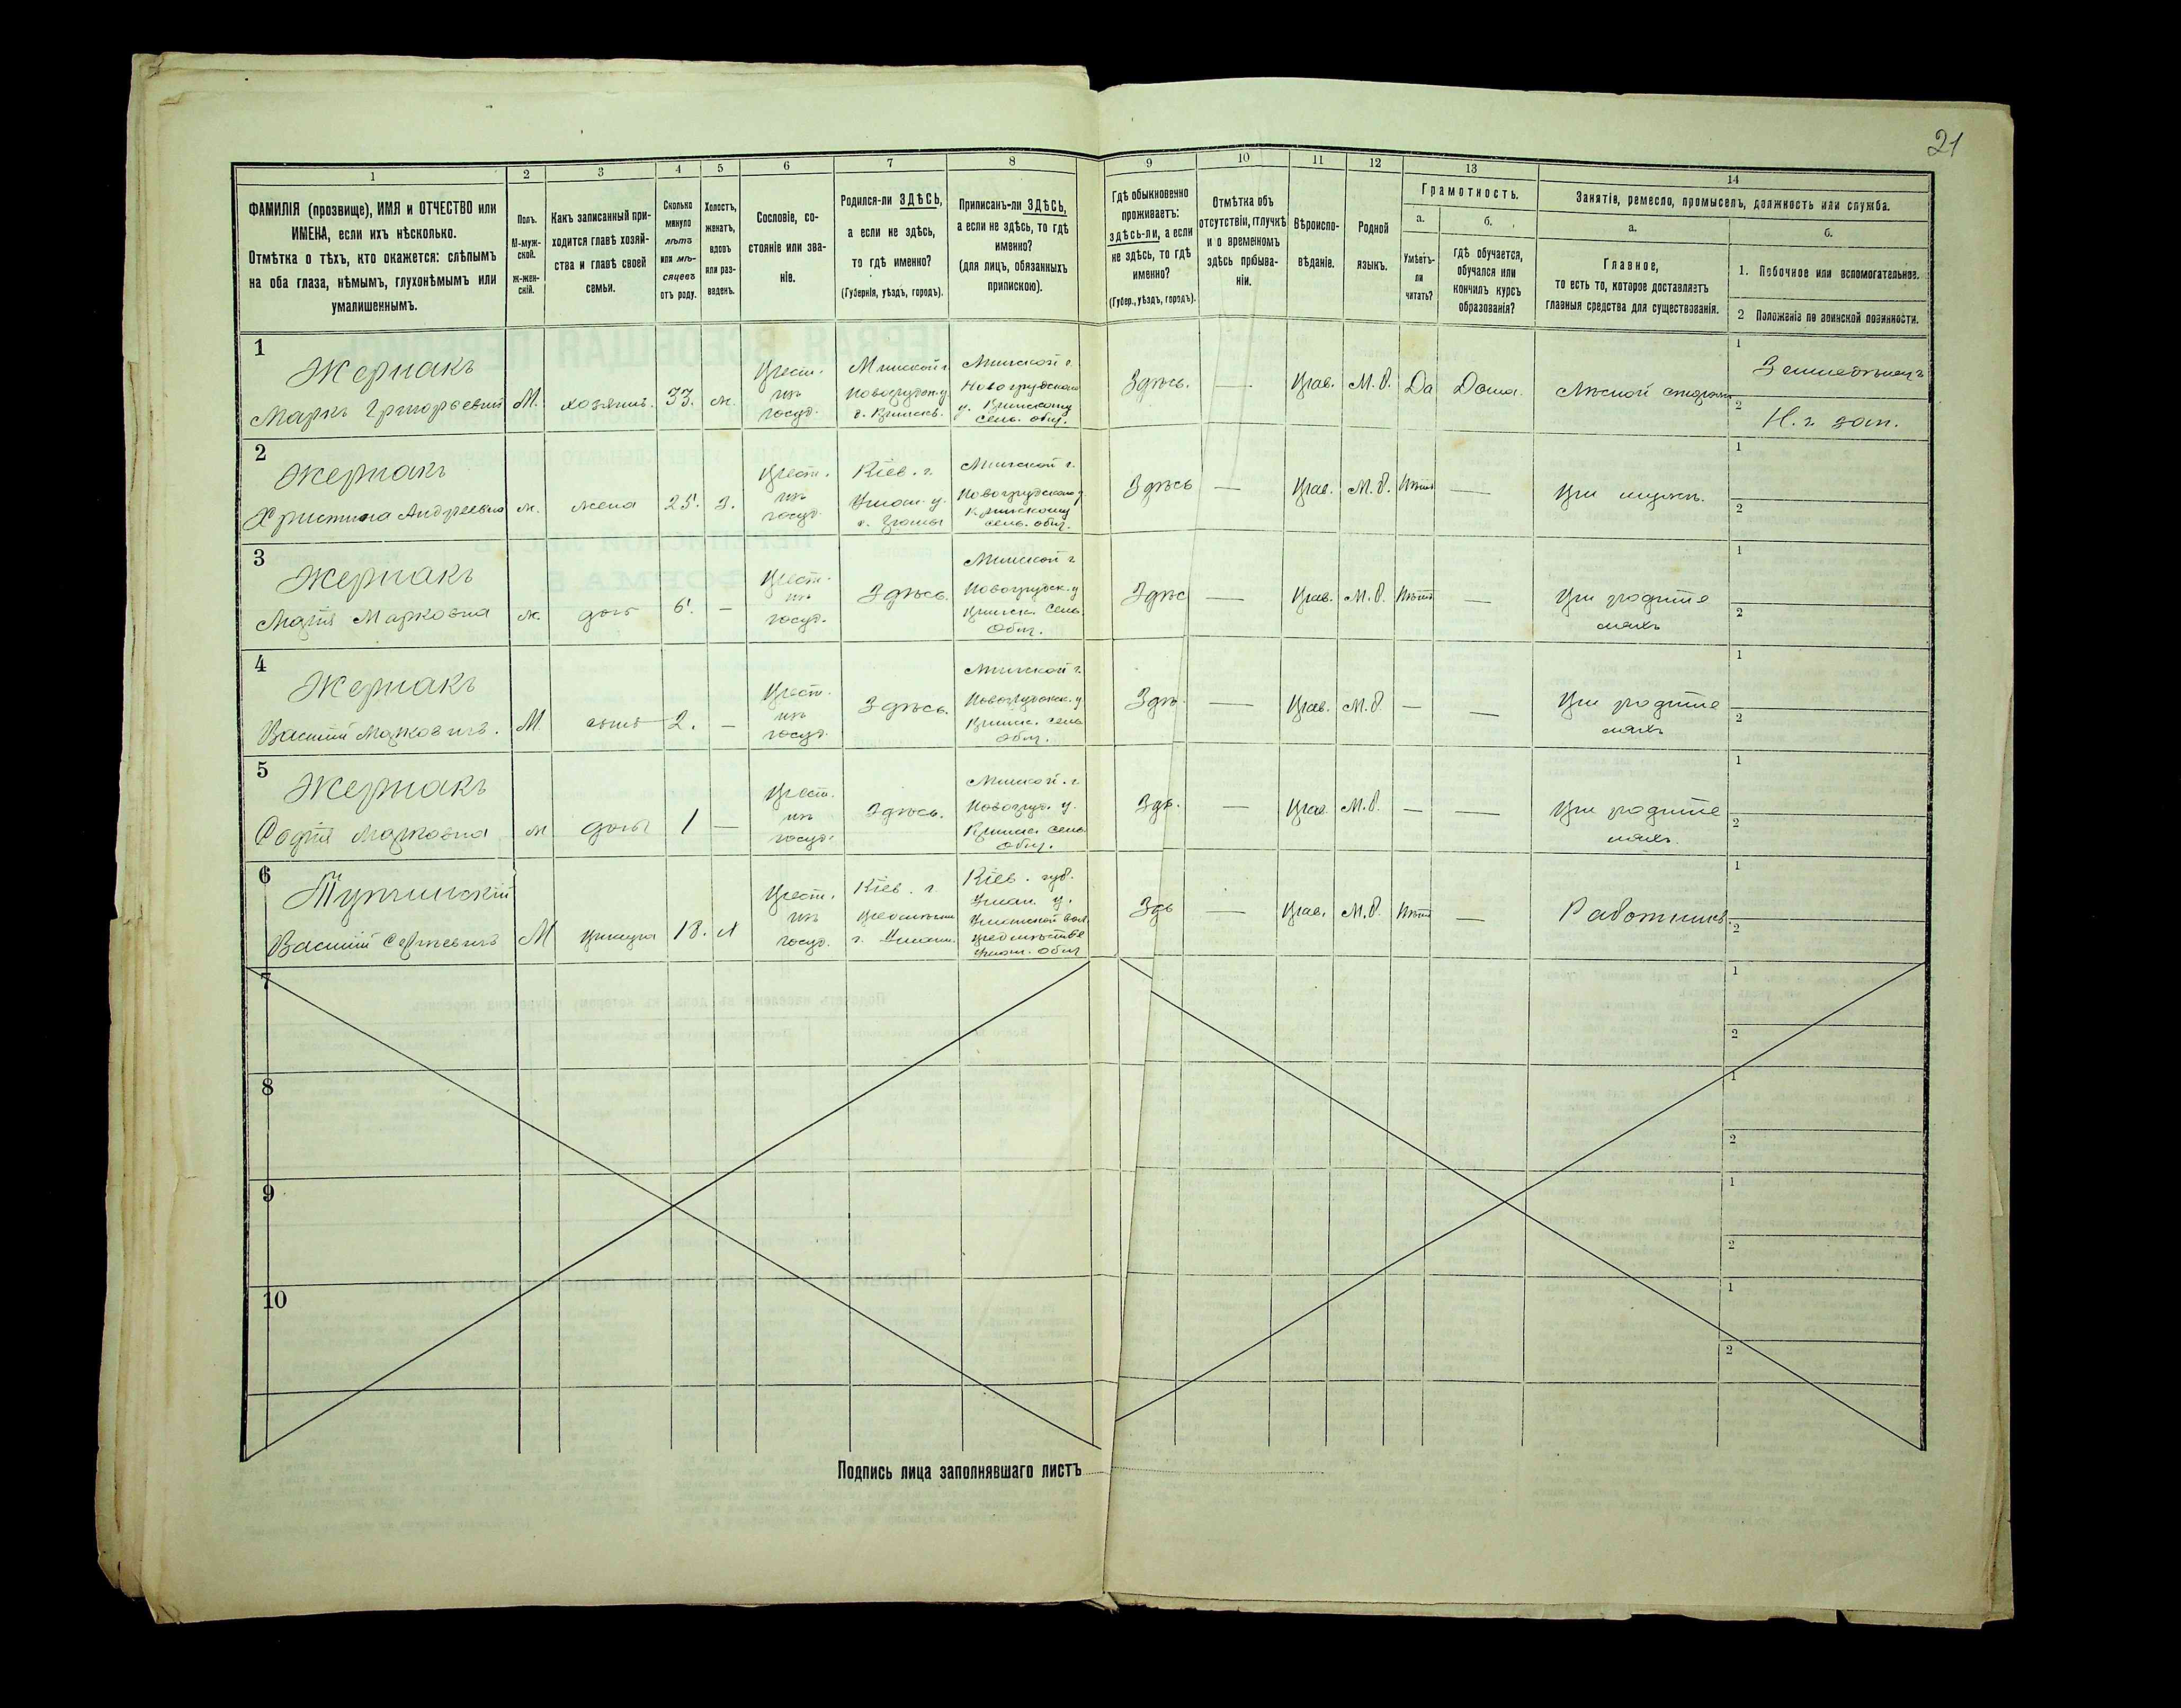 21
1 2 3 4 5 6 7 8 9 10 11 12 13 14
ФАМИЛІЯ (прозвище), ИМЯ и ОТЧЕСТВО или
ИМЕНА, если ихъ нѣсколько.
Отмѣтка о тѣхъ, кто окажется: слѣпымъ
на оба глаза, нѣмымъ, глухонѣмымъ или
умалишеннымъ.
Полъ.
М-муж-
ской.
Ж-жен-
скій.
Какъ записанный при-
ходится главѣ хозяй-
ства и главѣ своей
семьи.
Сколько
минуло
лѣтъ
или мѣ-
сяцевъ
отъ роду.
Холостъ,
женатъ,
вдовъ
или раз-
веденъ.
Сословіе, со-
стояніе или зва-
ніе.
Родился-ли ЗДѢСЬ,
а если не здѣсь,
то гдѣ именно?
(Губернія, уѣздъ, городъ).
Приписанъ-ли ЗДѢСЬ,
а если не здѣсь, то гдѣ
именно?
(для лицъ, обязанныхъ
припискою).
Гдѣ обыкновенно
проживаетъ:
здѣсь-ли, а если
не здѣсь, то гдѣ
именно?
(Губер., уѣздъ, городъ).
Отмѣтка объ
отсутствіи, отлучкѣ
и о временномъ
здѣсь пребыва-
ніи.
Вѣроиспо-
вѣданіе.
Родной
языкъ.
Грамотность.
а.
Умѣетъ-
ли
читать?
б.
гдѣ обучается,
обучался или
кончилъ курсъ
образованія?
Занятіе, ремесло, промыселъ, должность или служба.
а.
Главное,
то есть то, которое доставляетъ
главныя средства для существованія.
б.
1. Побочное или вспомогательное.
2 Положеніе по воинской повинности.
1
Жернакъ
Маркъ Григорьевичъ
М.
хозяинъ.
33.
ж.
Крест.
изъ
госуд.
Минской г.
Новогрудск. у.
Минской г.
Новогрудского
у.
сель. общ.
Здѣсь.
—
Прав.
М.р.
Да
Дома.
Лѣсной сторожъ
1
Земледѣлецъ
2
Н. г. зап.
2
Жернакъ
Христина Андреевна
ж.
жена
25.
З.
Крест.
изъ
госуд.
Кіев. г.
Уман. у.
Минской г.
Новогрудского у.
сель. общ.
Здѣсь
—
Прав.
М.р.
Нѣтъ
—
При мужѣ.
1
2
3
Жернакъ
Марія Марковна
ж.
дочь
6.
—
Крест.
изъ
госуд.
Здѣсь.
Минской г.
Новогрудск. у
сель.
общ.
Здѣс
—
Прав.
М.р.
Нѣтъ
—
При родите
ляхъ
1
2
4
Жернакъ
Василій Марковичъ.
М.
сынъ
2.
—
Крест.
изъ
госуд.
Здѣсь.
Минской г.
Новогрудск. у
сель
общ.
Здѣ.
—
Прав.
М.р.
—
—
При родите
ляхъ
1
2
5
Жернакъ
Софія Марковна
ж
дочь
1
—
Крест.
изъ
госуд.
Здѣсь.
Минской. г.
Новогруд. у.
сель.
общ.
Здѣ.
—
Прав.
М.р.
—
—
При родите
ляхъ.
1
2
6
Василій Сергѣевичъ
М
18.
Х
Крест.
изъ
госуд.
Кіев. г.
г. Умани.
Кіев. губ.
Уман. у.
Уманской вол.
общ
Здѣ
—
Прав.
М.р.
Нѣтъ
—
Работникъ.
1
2
7
1
2
8
1
2
9
1
2
10
1
2
Подпись лица заполнявшаго листъ